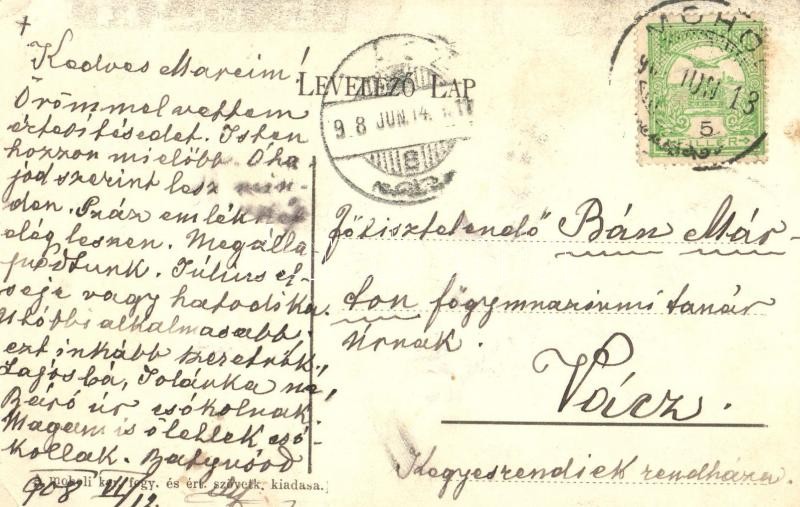 Kedves Marcim!
LEVELEZŐ LAP
Örömmel vettem
értesítésedet. Isten
hozzon mielőbb. Óha
jod szerint lesz min-
den. Száz emlék
elég leszen. Megálla
podtunk. Július el
seje vagy hatodika.
Utóbbi alkalmasabb.
ezt inkább
Lajos bá, Jolánka né,
Báró úr csókolnak
Magam is ölellek csó-
kollak.
908 VI/12.
MOHOL
JUN 13
5
FILLÉR
9 8 JUN. 14.
8
Főtisztelendő Bán Már-
ton főgymnáziumi tanár
Úrnak.
Vácz.
Kegyesrendiek rendháza.
moholi ker. fogy. és ért. szövetk. kiadása.